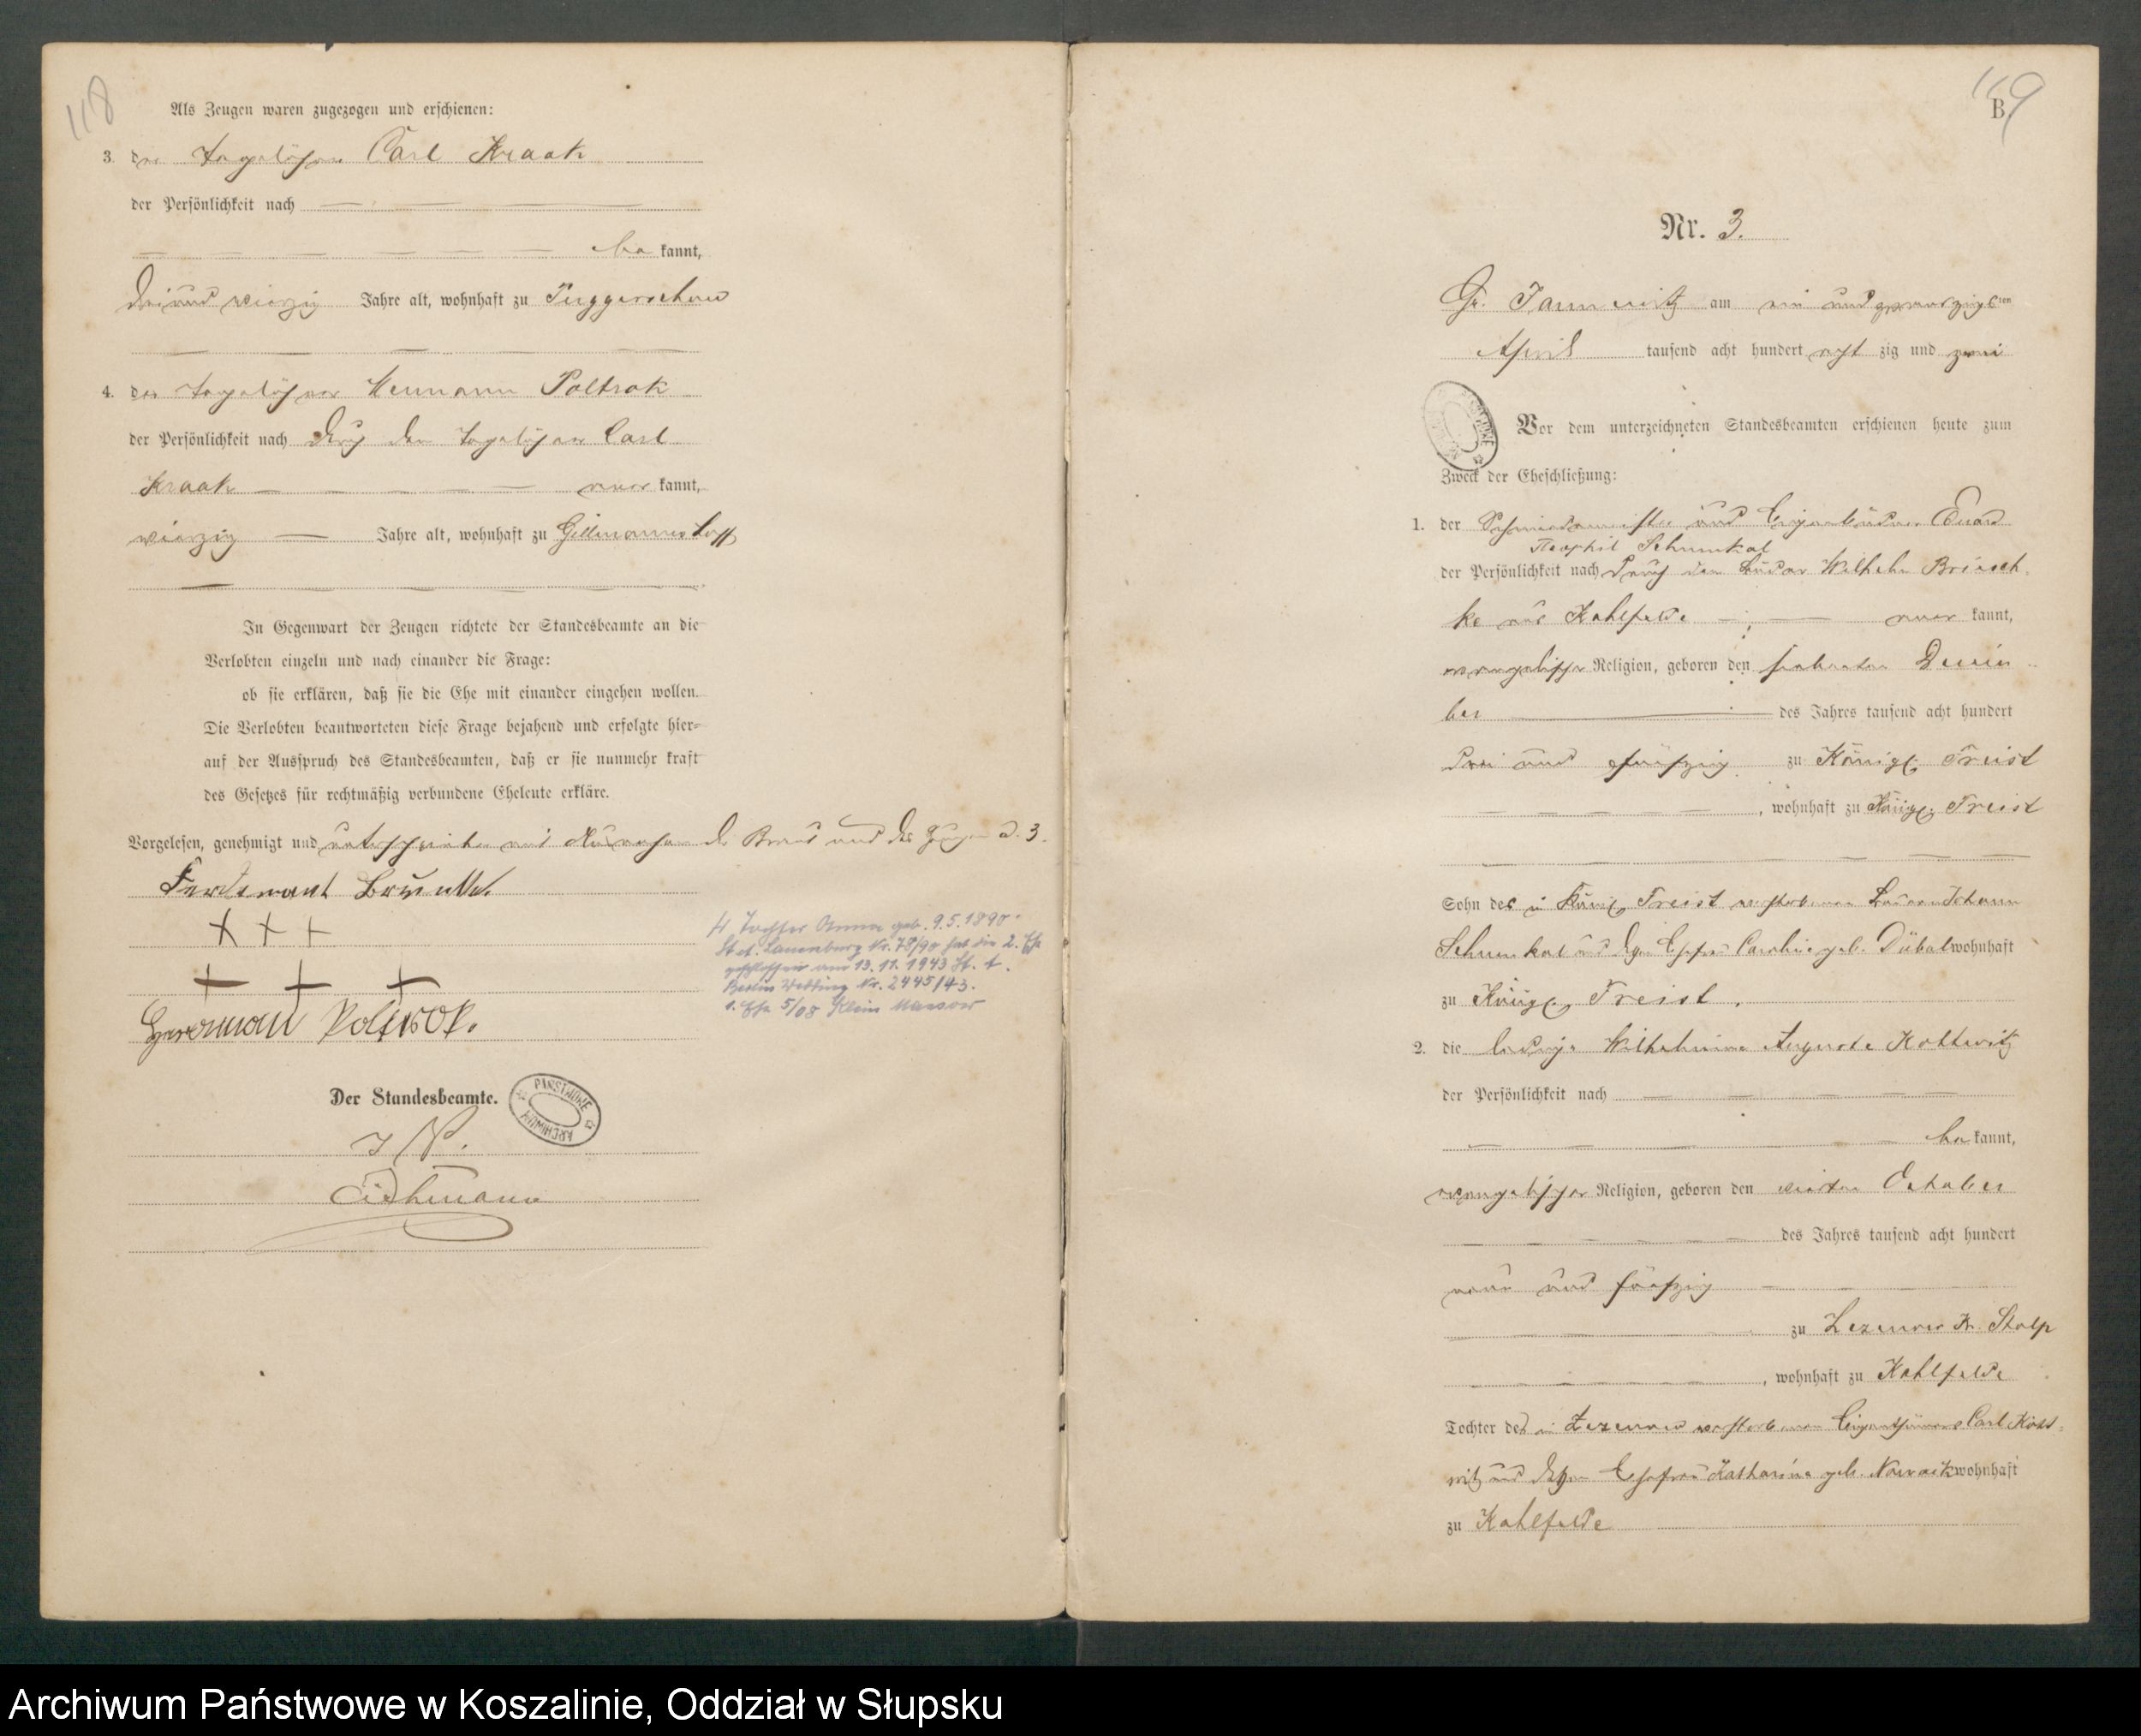 118
Als Zeugen waren zugezogen und erschienen:
3. der Tagelöhner Carl Kraak
der Persönlichkeit nach
be kannt,
drei und vierzig Jahre alt, wohnhaft zu Puggerschow
4. der Tagelöhner Hermann Poltrok
der Persönlichkeit nach durch den Tagelöhner Carl
Kraak aner kannt,
vierzig Jahre alt, wohnhaft zu
In Gegenwart der Zeugen richtete der Standesbeamte an die
Verlobten einzeln und nach einander die Frage:
ob sie erklären, daß sie die Ehe mit einander eingehen wollen.
Die Verlobten beantworteten diese Frage bejahend und erfolgte hier-
auf der Ausspruch des Standesbeamten, daß er sie nunmehr kraft
des Gesetzes für rechtmäßig verbundene Eheleute erkläre.
Vorgelesen, genehmigt und unterschrieben mit Ausnahme der Braut und des Zeugen ad. 3.
+ + +
+ + +
4. Tochter Anna geb. 9.5.1890
St.A. Lauenburg Nr. 78/90 hat die 2. Ehe
geschlossen am 13.11.1943 St. A.
Berlin Wedding Nr. 2445/43.
1. Ehe 5/08 Klein Massow
Der Standesbeamte.
PAŃSTWOWE
ARCHIWUM
119
B.
Nr. 3.
Gr. Jannewitz am ein und zwanzigsten
April tausend acht hundert acht zig und zwei
Vor dem unterzeichneten Standesbeamten erschienen heute zum
Zweck der Eheschließung:
1. der Schmiedemeister und Eigenbüdner Eduard
Theophil Schumkal
der Persönlichkeit nach durch den Büdner Wilhelm Briesch
ke aus Kahlfelde aner kannt,
evangelischer Religion, geboren den siebenten Decem
ber des Jahres tausend acht hundert
drei und fünfzig zu Königl. Freist
, wohnhaft zu Königl. Freist
Sohn des in Königl. Freist verstorbenen Büdner Johann
Schumkal und dessen Ehefrau Caroline geb. Dübal wohnhaft
zu Königl. Freist.
2. die ledige Wilhelmine Auguste Kottwitz
der Persönlichkeit nach
be kannt,
evangelischer Religion, geboren den vierten October
des Jahres tausend acht hundert
neun und fünfzig
zu Zezenow Kr. Stolp
, wohnhaft zu Kahlfelde
Tochter des in Zezenow verstorbenen Eigenthümers Carl Kott-
witz und dessen Ehefrau Katharina geb. Nowack wohnhaft
zu Kahlfelde
Archiwum Państwowe w Koszalinie, Oddział w Słupsku